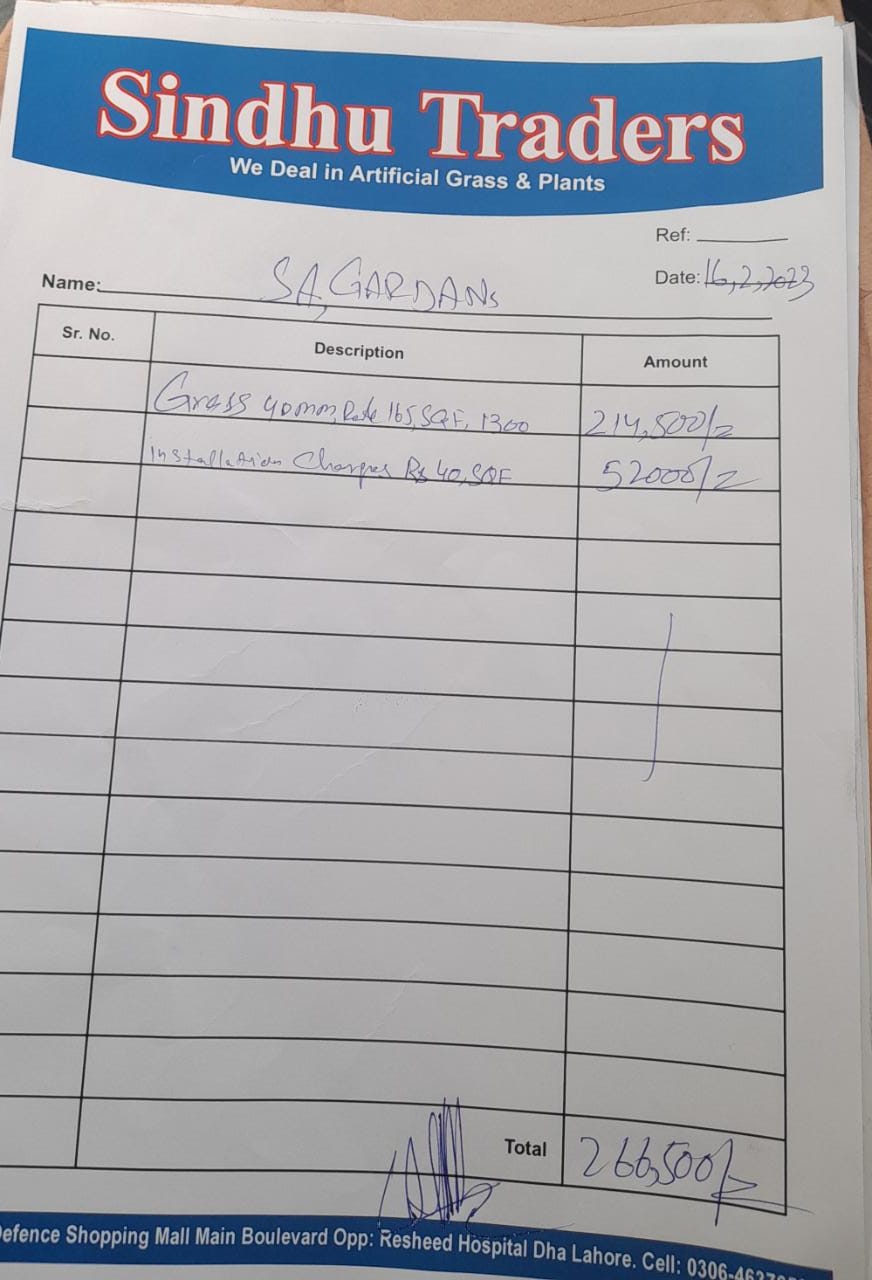 Sindhu Traders
We Deal in Artificial Grass & Plants
Ref:
Date: 16,2,2023
Name: SA, GARDANs
Sr. No. Description Amount
Grass 40mm, Rate 165, SQF, 1300 214,500/=
installation Charges Rs 40, SQF 52000/=
Total 266,500/=
efence Shopping Mall Main Boulevard Opp: Resheed Hospital Dha Lahore. Cell: 0306-4637